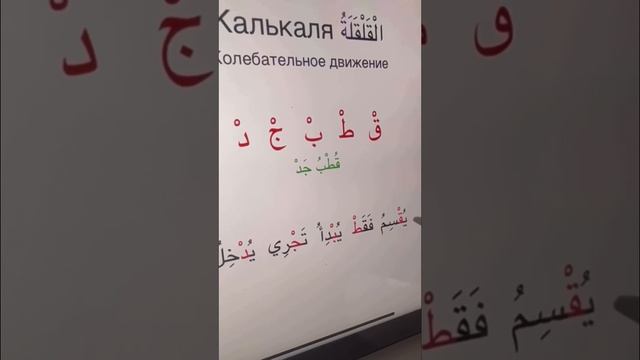 Калькаля الْقَلْقَلَةُ
Колебательное движение
قْ طْ بْ جْ دْ
قُطْبُ جَدْ
يُقْسِمُ فَقَطْ يُبْدِأُ تَجْرِي يُدْخِلُ
يُقْسِمُ فَقَطْ